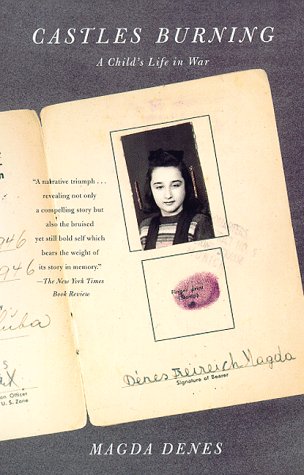 CASTLES BURNING
A Child's Life in War
"A narrative triumph . . .
revealing not only
a compelling story but
also the bruised
yet still bold self which
bears the weight of
its story in memory."
—The New York Times
Book Review
1946
1946
Dénes Freireich Magda
Signature of Bearer
on Officer
U. S. Zone
MAGDA DENES